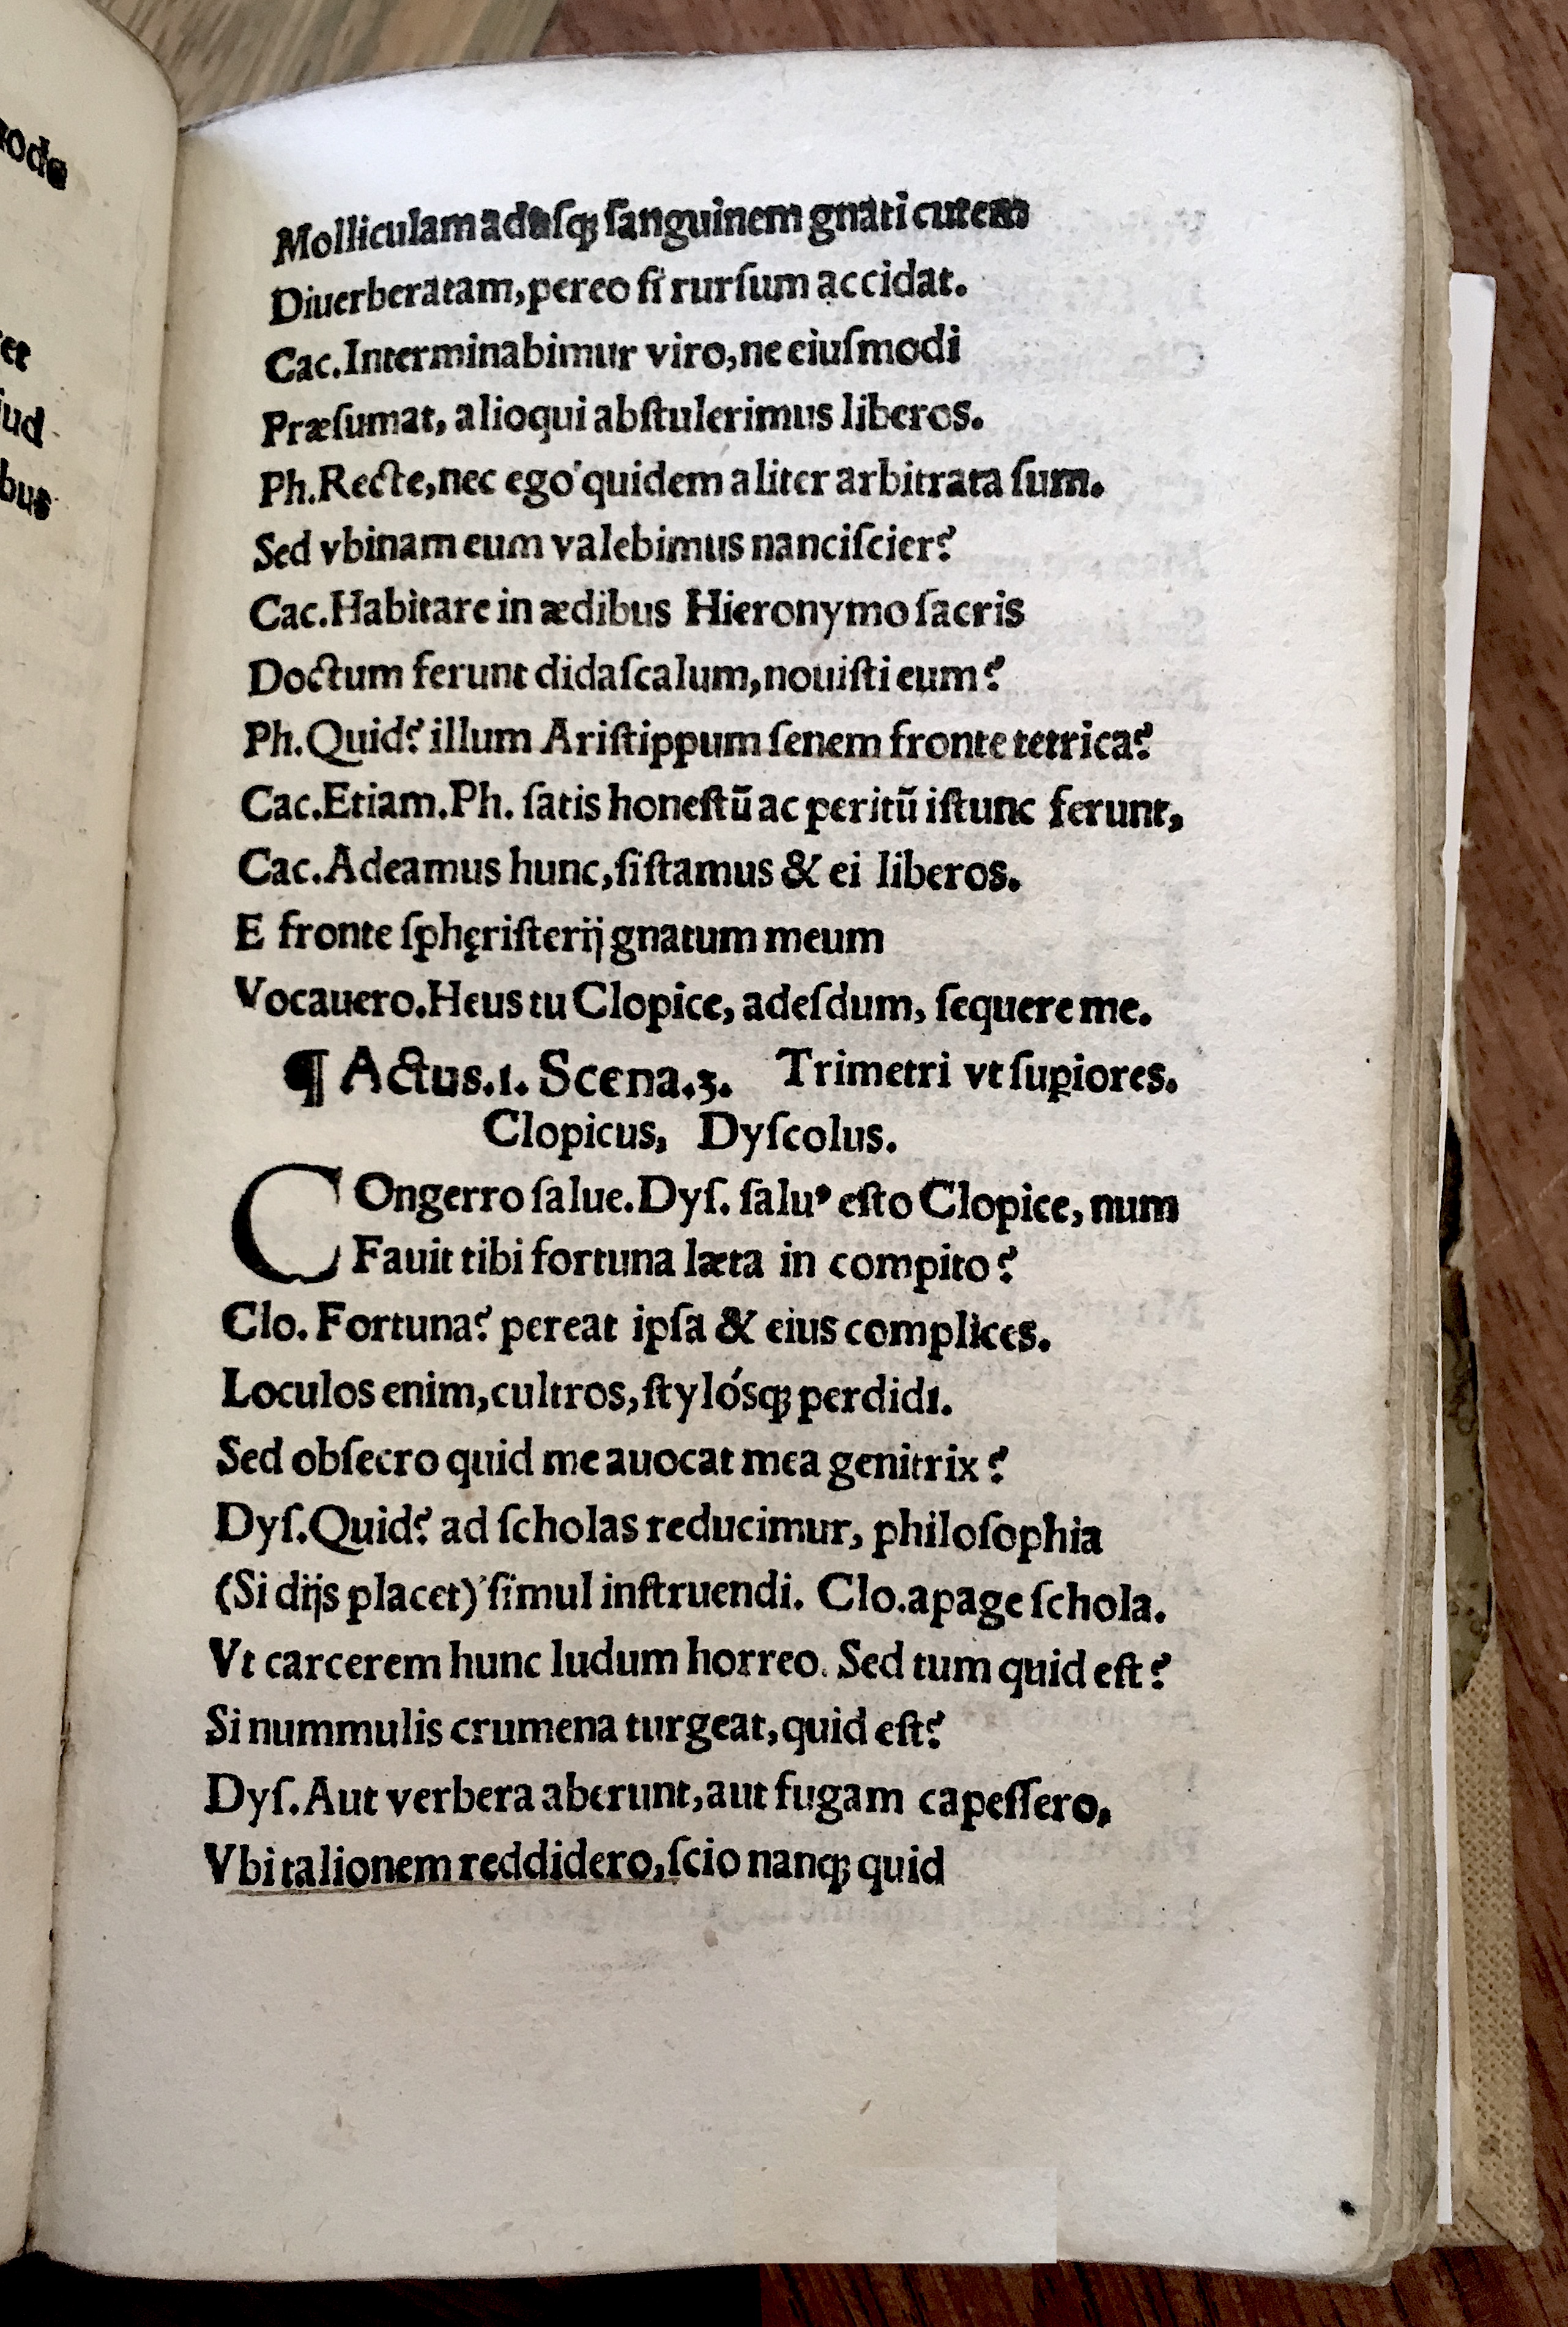 Molliculam aduſqꝫ ſanguinem gnati cutem
Diuerberatam, pereo ſi rurſum accidat.
Cac. Interminabimur viro, ne eiuſmodi
Præſumat, alioqui abſtulerimus liberos.
Ph. Recte, nec ego quidem aliter arbitrata ſum.
Sed vbinam eum valebimus nanciſcier?
Cac. Habitare in ædibus Hieronymo ſacris
Doctum ferunt didaſcalum, nouiſti eum?
Ph. Quid? illum Ariſtippum ſenem fronte tetrica?
Cac. Etiam. Ph. ſatis honeſtū ac peritū iſtunc ferunt,
Cac. Adeamus hunc, ſiſtamus & ei liberos.
E fronte ſphęriſterij gnatum meum
Vocauero. Heus tu Clopice, adeſdum, ſequere me.
¶ Actus. 1. Scena. 3. Trimetri vt ſuꝑiores.
Clopicus, Dyſcolus.
COngerro ſalue. Dyſ. ſaluꝰ eſto Clopice, num
Fauit tibi fortuna læta in compito?
Clo. Fortuna? pereat ipſa & eius complices.
Loculos enim, cultros, ſtylósqꝫ perdidi.
Sed obſecro quid me auocat mea genitrix?
Dyſ. Quid? ad ſcholas reducimur, philoſophia
(Si dijs placet) ſimul inſtruendi. Clo. apage ſchola.
Vt carcerem hunc ludum horreo. Sed tum quid eſt?
Si nummulis crumena turgeat, quid eſt?
Dyſ. Aut verbera aberunt, aut fugam capeſſero,
Vbi talionem reddidero, ſcio nanqꝫ quid